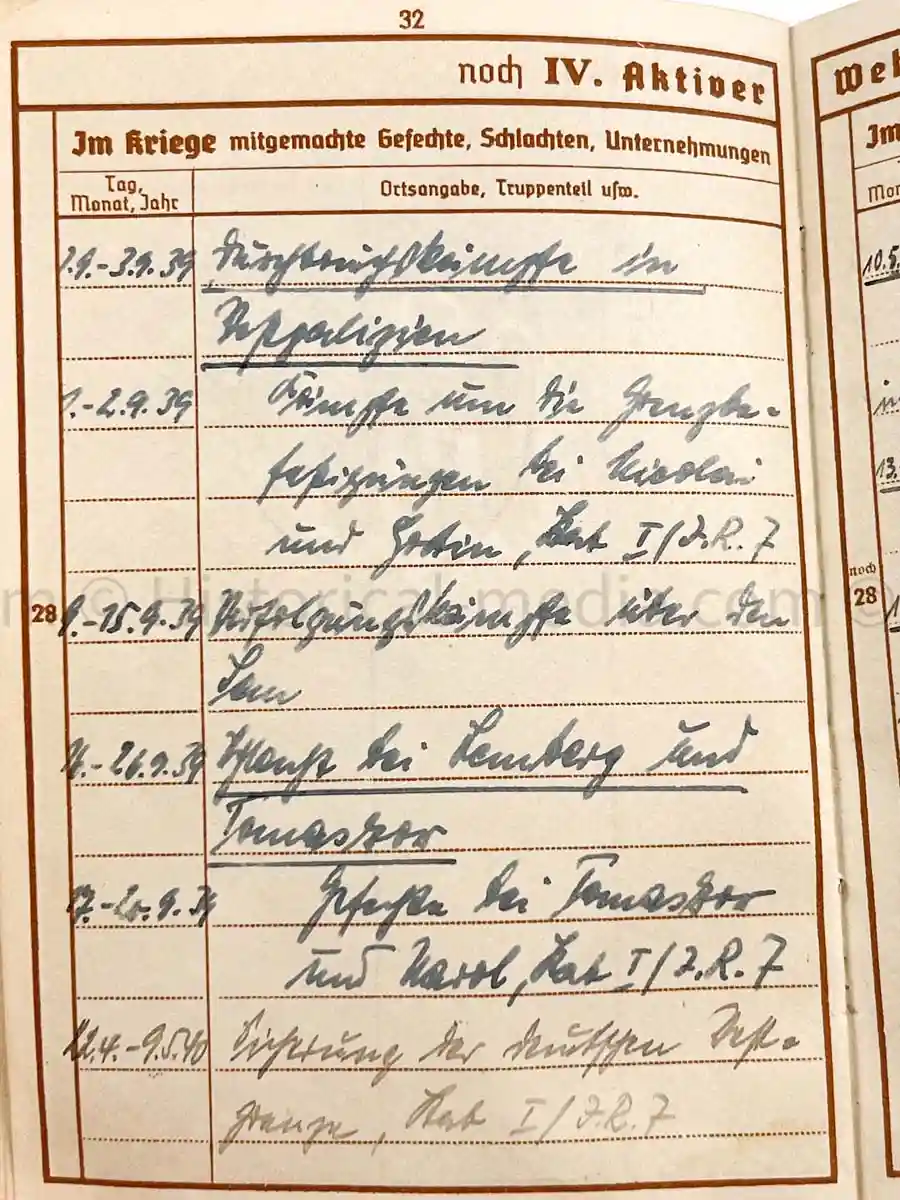 32
noch IV. Aktiver
Im Kriege mitgemachte Gefechte, Schlachten, Unternehmungen
Tag, Monat, Jahr Ortsangabe, Truppenteil usw.
1.9.-3.9.39 Durchbruchskämpfe in
Westgalizien
1.-2.9.39 Kämpfe um die Grenzbe-
festigungen bei Nicolai
und Gostin, Stab I/J.R.7
28 9.-15.9.39 Verfolgungskämpfe über den
San
16.-26.9.39 Schlacht bei Lemberg und
Tomaszow
17.-20.9.39 Gefechte bei Tomaszow
und Narol, Stab I/J.R.7
22.4.-9.5.40 Sicherung der deutschen West-
grenze, Stab I/J.R.7
Weh
Im
Mon
10.5.
13.
noch
28
© Historical-media.com ©